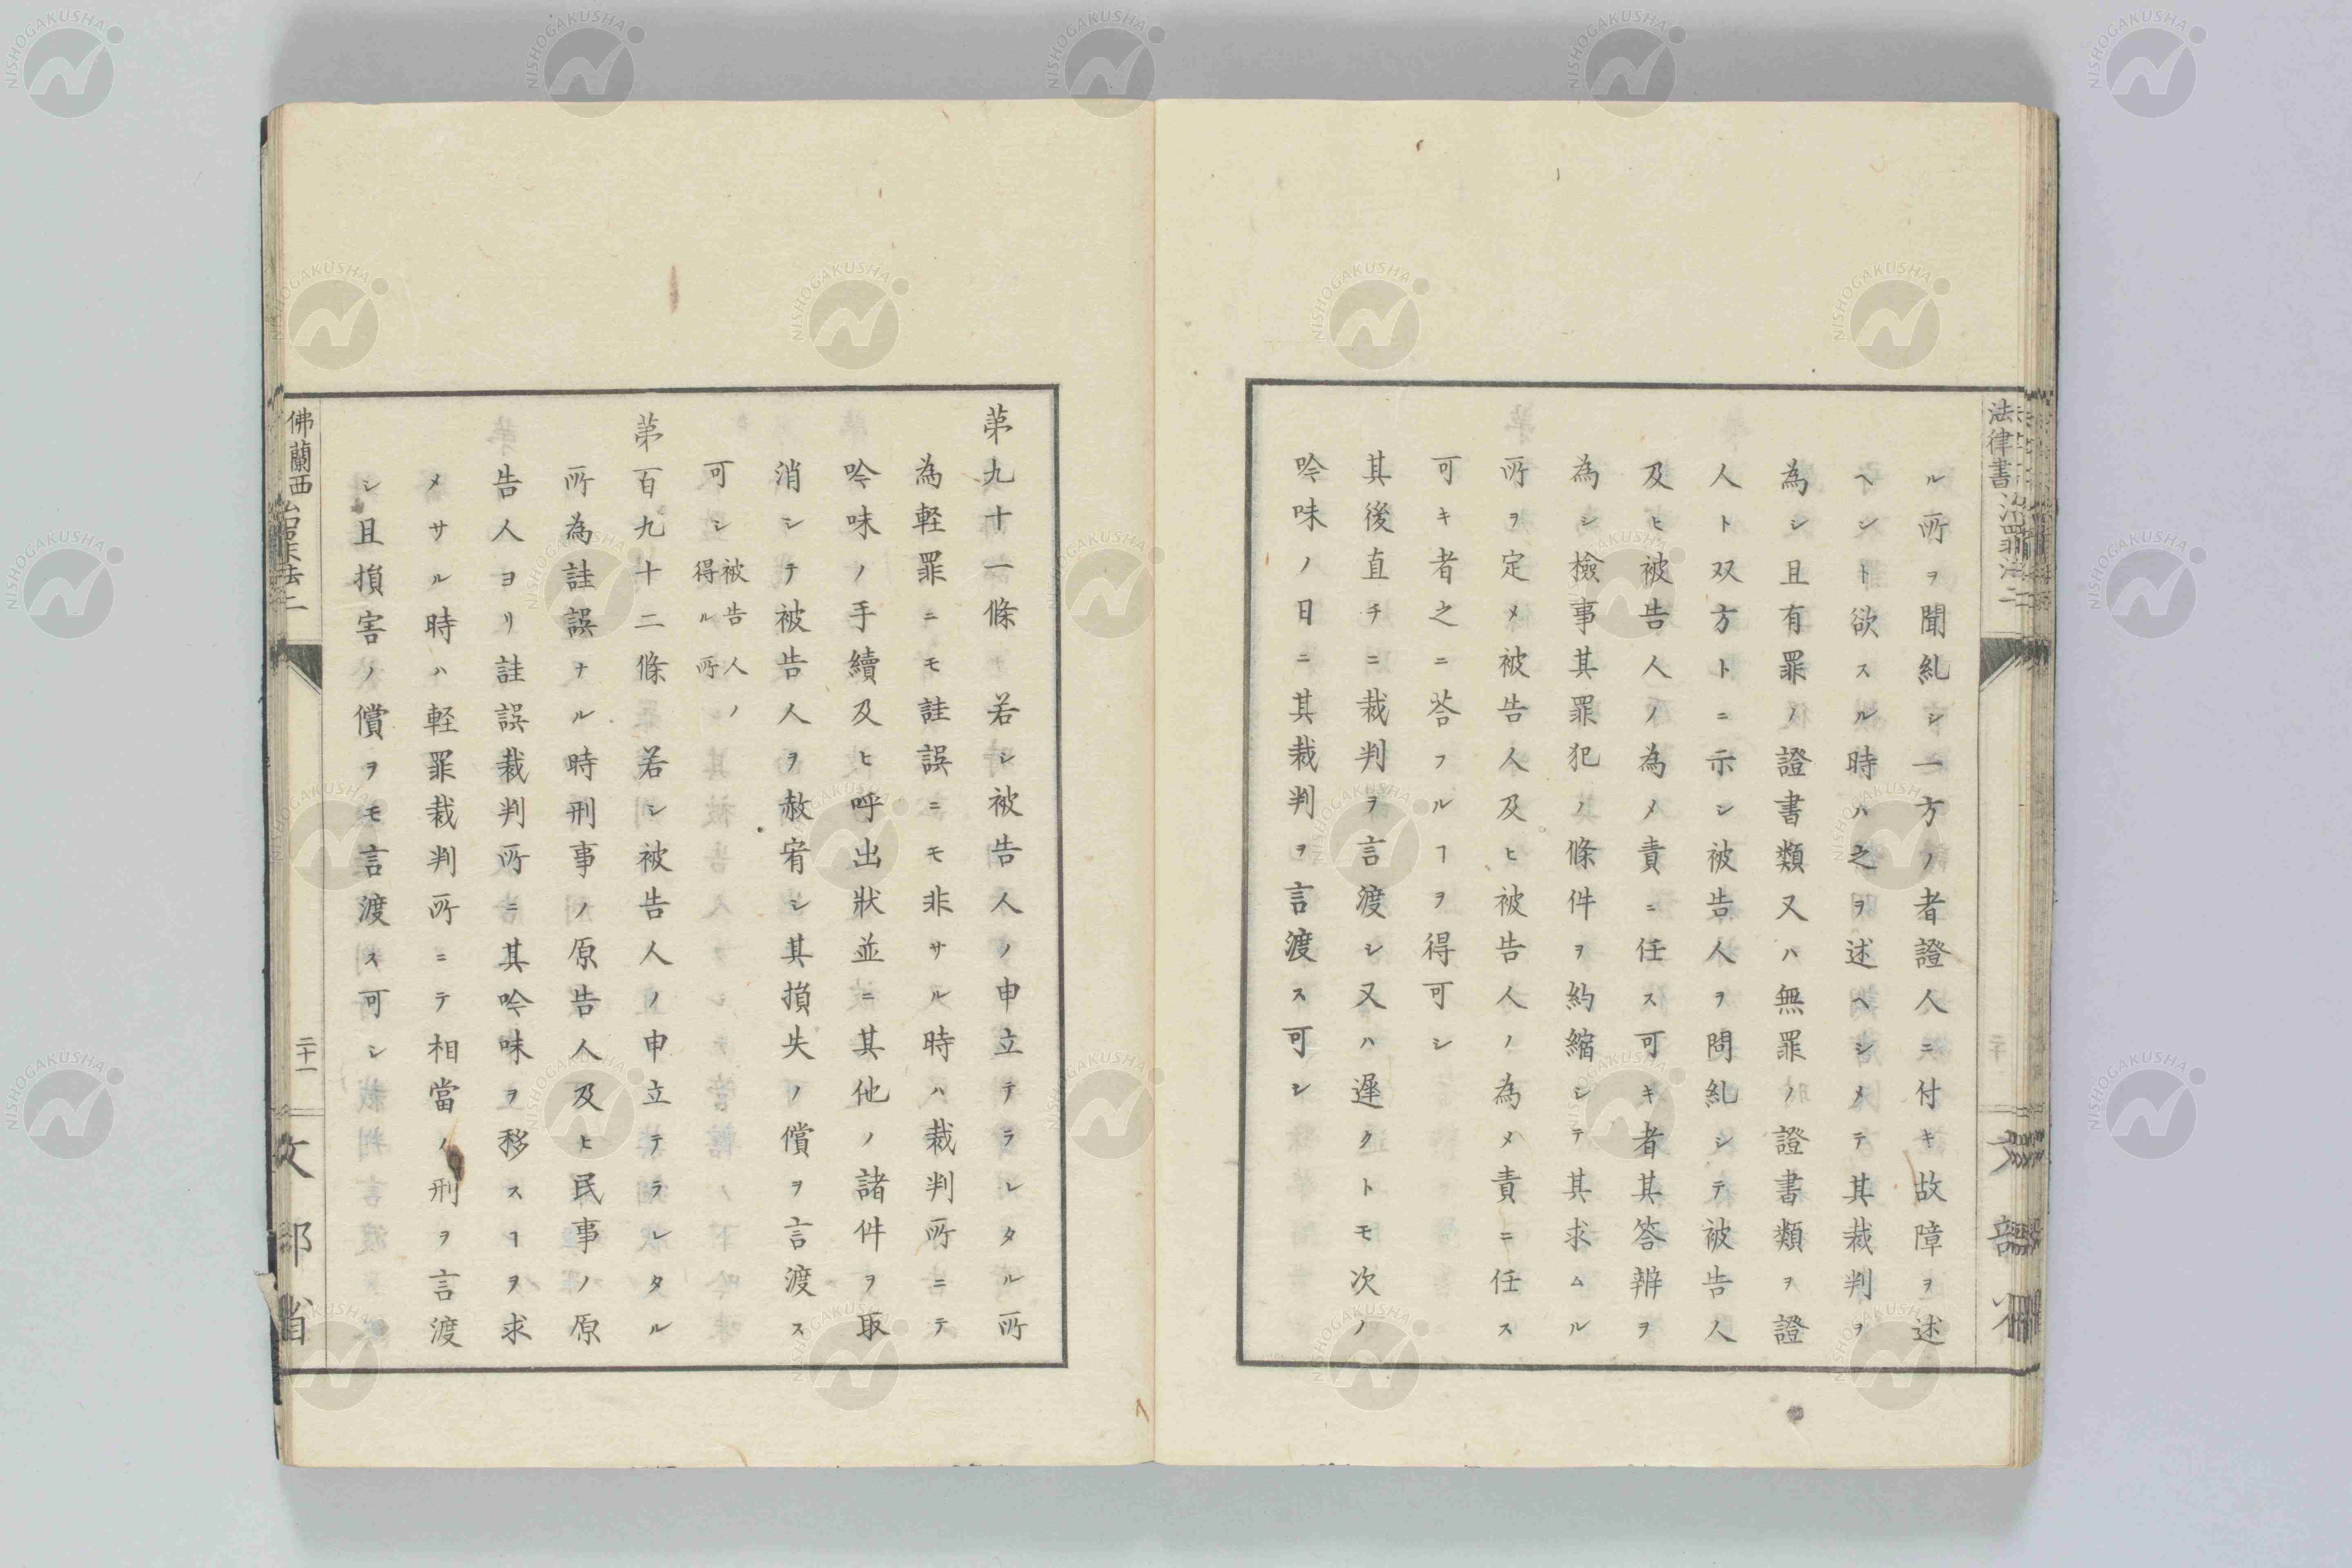 ル所ヲ聞糺シ一方ノ者證人ニ付キ故障ヲ述
ヘシト欲スル時ハ之ヲ述ヘシメテ其裁判ヲ
為シ且有罪ノ證書類又ハ無罪ノ證書類ヲ證
人ト双方トニ示シ被告人ヲ問糺シテ被告人
及ヒ被告人ノ為メ責ニ任ス可キ者其答辨ヲ
為シ檢事其罪犯ノ條件ヲ約縮シテ其求ムル
所ヲ定メ被告人及ヒ被告人ノ為メ責ニ任ス
可キ者之ニ荅フルヿヲ得可シ
其後直チニ裁判ヲ言渡シ又ハ遲クトモ次ノ
吟味ノ日ニ其裁判ヲ言渡ス可シ
第九十一條 若シ被告人ノ申立テラレタル所
為軽罪ニモ註誤ニモ非サル時ハ裁判所ニテ
吟味ノ手續及ヒ呼出狀並ニ其他ノ諸件ヲ取
消シテ被告人ヲ赦宥シ其損失ノ償ヲ言渡ス
可シ被告人ノ得ル所
第百九十二條 若シ被告人ノ申立テラレタル
所為註誤ナル時刑事ノ原告人及ヒ民事ノ原
告人ヨリ註誤裁判所ニ其吟味ヲ移スヿヲ求
メサル時ハ軽罪裁判所ニテ相當ノ刑ヲ言渡
シ且損害ノ償ヲモ言渡ス可シ
佛蘭西治罪法二
二十一
文部省
法律書
NISHOGAKUSHA